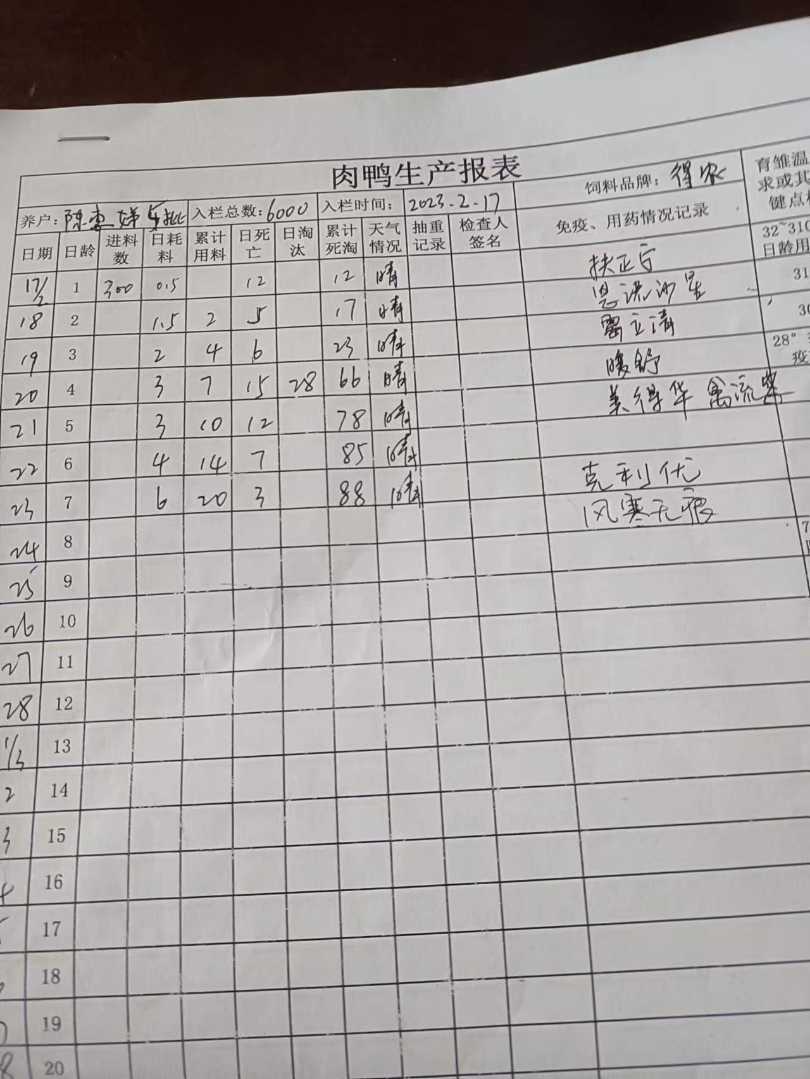 肉鸭生产报表
养户: 陈 娣 5批 入栏总数: 6000 入栏时间: 2023.2.17 饲料品牌: 得农 育雏温
求或其
健点
日期 日龄 进料数 日耗料 累计用料 日死亡 日淘汰 累计死淘 天气情况 抽重记录 检查人签名 免疫、用药情况记录 32~31
日龄用
17/2 1 300 0.5 12 12 晴 扶正宁 31
18 2 1.5 2 5 17 晴 恩诺沙星 30
19 3 2 4 6 23 晴 清 28°
疫
20 4 3 7 15 28 66 晴 暖舒
21 5 3 10 12 78 晴 美得华 禽流
22 6 4 14 7 85 晴
23 7 6 20 3 88 晴 克利优
24 8 风寒无
25 9
26 10
27 11
28 12
1/3 13
2 14
3 15
4 16
17
18
19
8 20